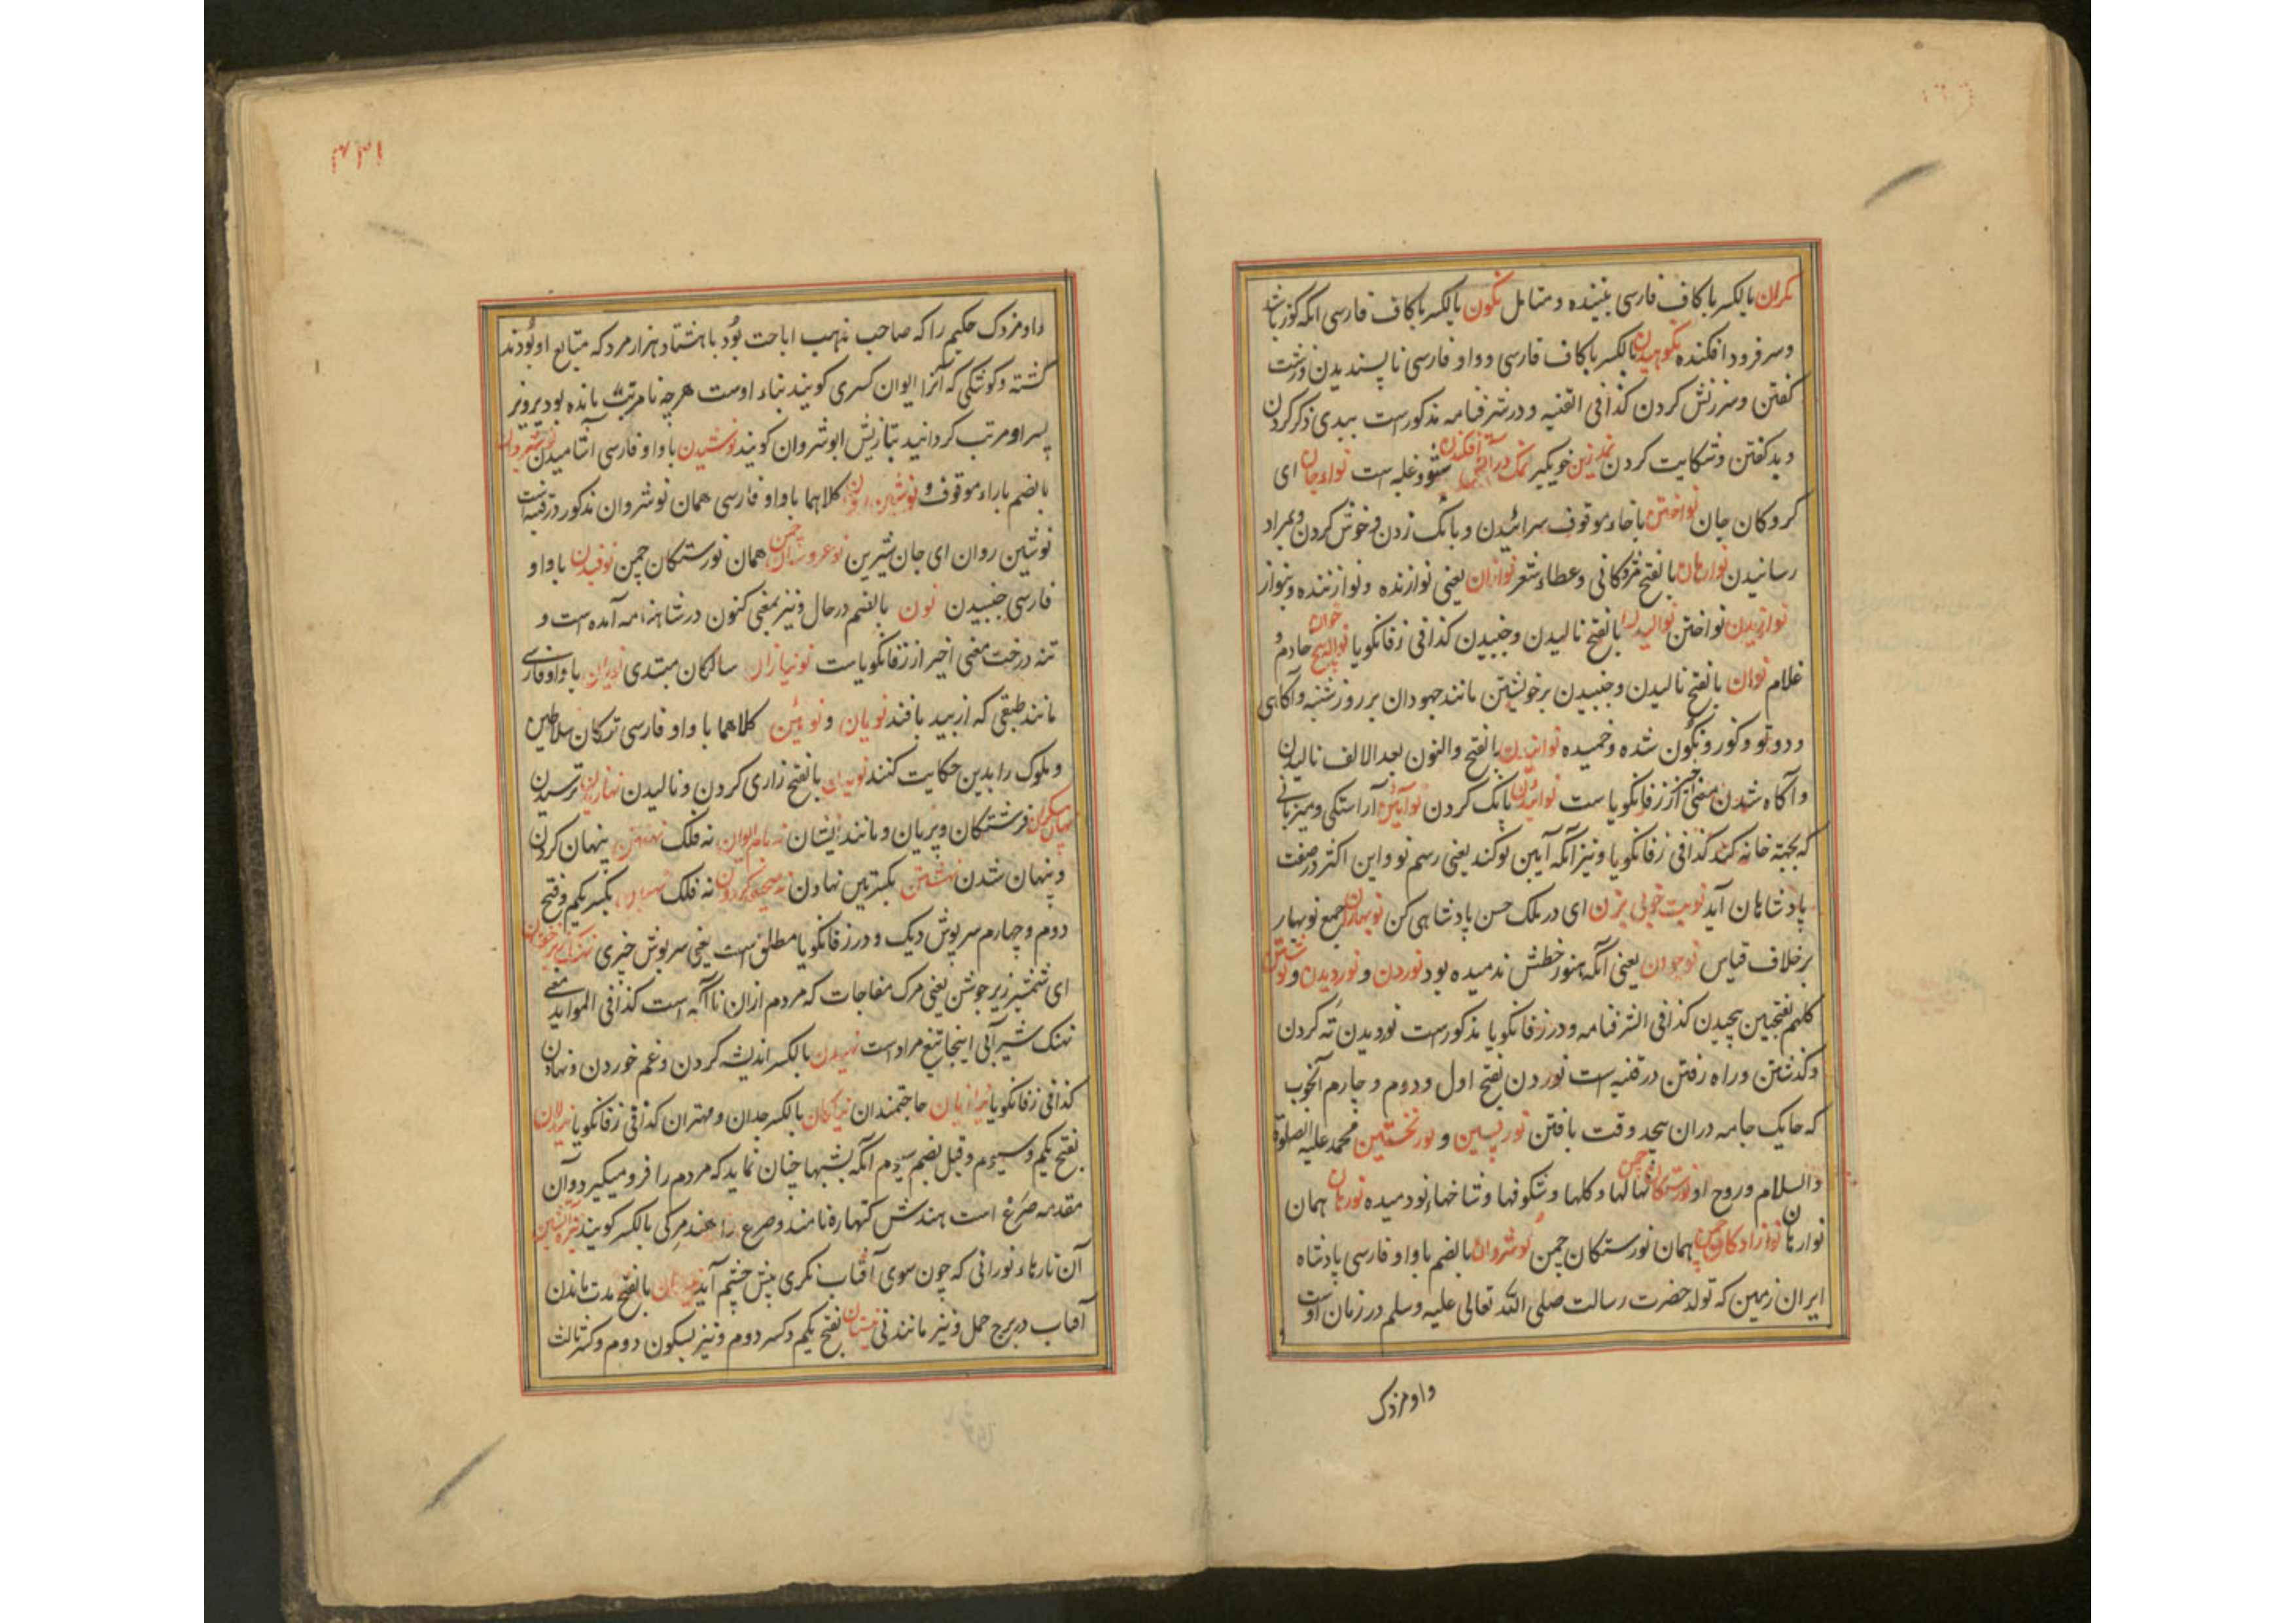 نکران بالکسر باکاف فارسی بیننده و متامل نکون بالکسر باکاف فارسی انکه کوز باشد
وسر فرود افکنده نکوهیدن بالکسر باکاف فارسی و واو فارسی ناپسندیدن وزشت
کفتن وسرزنش کردن کذافی القنیه و درشرفنامه مذکورست ببدی ذکر کردن
و بد کفتن وشکایت کردن نمدزین خویکیر نمک درآتش افکندن شور و غلبه است نواء جان ای
کروکان جان نواختن باخاء موقوف سرائیدن و بانک زدن و خوش کردن و بمراد
رسانیدن نوارهان بالفتح مژدکانی وعطاء شعر نوازان یعنی نوازنده و نوازننده وبنواز
نوازیدن نواختن نوالیدن بالفتح نالیدن وجنبیدن کذافی زفانکویا خادم و
غلام نوان بالفتح نالیدن وجنبیدن برخویشتن مانند جهودان برروز شنبه وآکاهی
و دوتو و کوز و نکون شده وخمیده نوانیدن بالفتح والنون بعد الالف نالیدن
و آکاه شدن معنی اخیر از زفانکویاست نوائیدن بانک کردن نوآئین آراستکی ومیزبانی
که بجهته خانه کنند کذافی زفانکویا ونیز انکه آیین نو کند یعنی رسم نو و این اکثر درصفت
پادشاهان آید نوبت خوبی بزن ای در ملک حسن پادشاهی کن نوبهاران جمع نوبهار
برخلاف قیاس نوجوان یعنی آنکه هنوز خطش ندمیده بود نوردن و نوردیدن و نوشتن
کلهم بفتحتین پیچیدن کذافی الشرفنامه و درزفانکویا مذکورست نوردیدن ته کردن
وکذشتن وراه رفتن درقنیه است نوردن بفتح اول و دوم و چارم انچوب
که حایک جامه دران پیچد وقت بافتن نور پسین و نور نخستین محمد علیه الصلوة
والسلام وروح او نورستکان چمن نهالها وکلها و شکوفها وشاخهاء نودمیده نورهان همان
نوارهان نوزادکان چمن همان نورستکان چمن نوشروان بالضم باواو فارسی پادشاه
ایران زمین که تولد حضرت رسالت صلی الله تعالی علیه وسلم درزمان اوست
داومزدک
۴۳۱
داومزدک حکیم را که صاحب مذهب اباحت بود باهشتاد هزار مرد که متابع او بودند
کشته وکوشکی که آنرا ایوان کسری کویند بناء اوست هرچه نامرتب مانده بود پرویز
پسر او مرتب کردانید بتازیش ابوشروان کویند نوشیدن باواو فارسی آشامیدن نوشیروان
بالضم باراء موقوف و نوشین روان کلاهما باواو فارسی همان نوشروان مذکور درقنیه است
نوشین روان ای جان شیرین نوعروسان چمن همان نورستکان چمن نوفیدن باواو
فارسی جنبیدن نون بالضم درحال ونیز بمعنی کنون درشاهنامه آمده است و
تنه درخت معنی اخیر از زفانکویاست نونیازان سالکان مبتدی باواو فارسی
مانند طبقی که از بید بافند نویان و نوئین کلاهما باواو فارسی ترکان سلاطین
وملوک را بدین حکایت کنند نویدن بالفتح زاری کردن ونالیدن نهاریدن ترسیدن
نهان پیکران فرشتکان وپریان ومانند ایشان نه بام ایوان نه فلک نهفتن پنهان کردن
وپنهان شدن نهشتن بکسرتین نهادن نه فلک نهنبن بکسر یکم وفتح
دوم و چهارم سرپوش دیک و در زفانکویا مطلق است یعنی سرپوش چیزی نهنک زیر جوشن
ای شمشیر زیر جوشن یعنی مرک مفاجات که مردم ازان ناآکه است کذافی المواید معنی
نهنک شیر آبی اینجا تیغ مراد است نهیدن بالکسر اندیشه کردن وغم خوردن ونهادن
کذافی زفانکویا حاجتمندان نیاکان بالکسر جدان ومهتران کذافی زفانکویا نیدلان
بفتح یکم وسیوم وقیل بضم سیوم انکه بشبها چنان نماید که مردم را فرو میکیرد وآن
مقدمه صرع است هندش کتهاره نامند وصرع را هند مرکی بالکسر کویند
آن تارهاء نورانی که چون سوی آفتاب نکری پیش چشم آید نیسان بالفتح مدت ماندن
آفتاب دربرج حمل ونیز مانند نی نیستان بفتح یکم وکسر دوم ونیز بسکون دوم وکسر ثالث